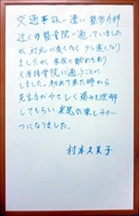 交通事故に遭い、整形外科
近くの整骨院に通っていました
が、対応が良くなく、少し遠くなり
ましたが、家族の勧めもあり
整骨院に通うことに
しました。初めて来た時から
先生方がやさしく痛みを理解
してもらい、来る事が楽しみの一
つになりました。
村本久美子